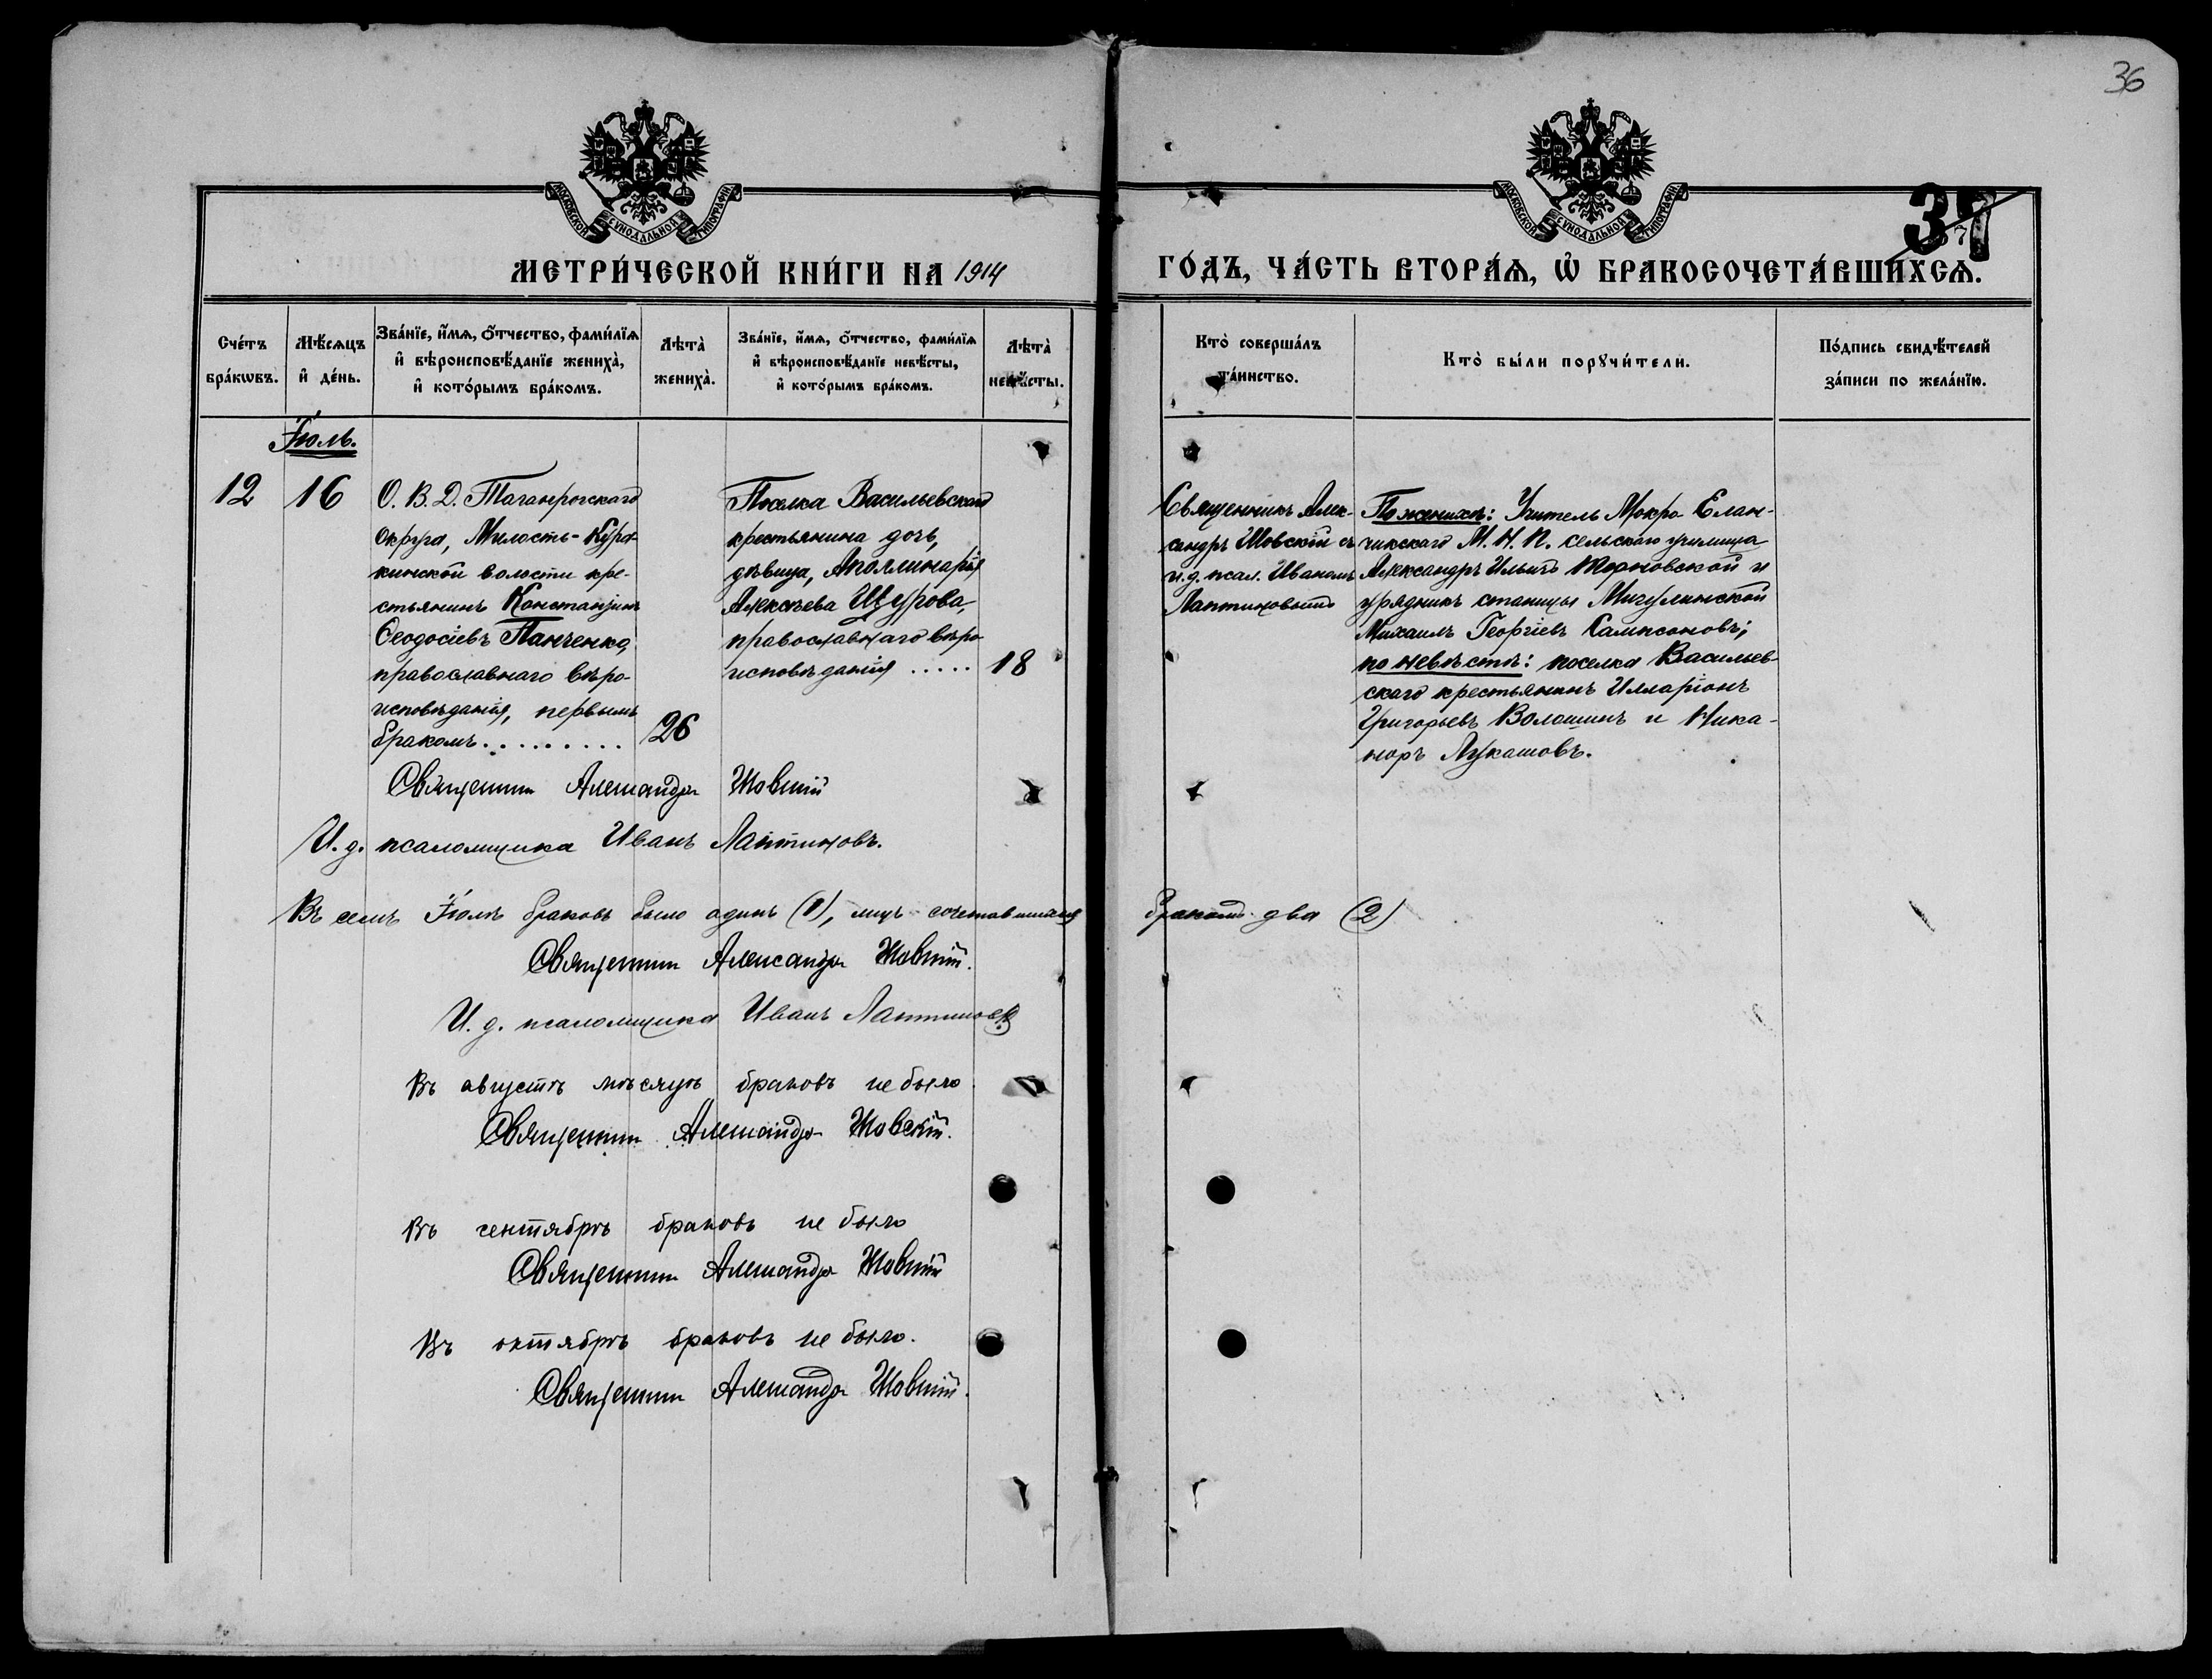 36
МОСКОВСКОЙ СѴНОДАЛЬНОЙ ТИПОГРАФІИ
МОСКОВСКОЙ СѴНОДАЛЬНОЙ ТИПОГРАФІИ
37
МЕТРИ́ЧЕСКОЙ КНИ́ГИ НА 1914
ГО́ДЪ, ЧА́СТЬ ВТОРА́Ѧ, Ѽ БРАКОСОЧЕТА́ВШИХСѦ.
Сче́тъ бра́кѡвъ.
Мѣ́сѧцъ и҆ де́нь.
Зва́нїе, и҆́мѧ, ѻ҆́тчество, фами́лїѧ и҆ вѣроисповѣ́данїе жениха̀, и҆ кото́рымъ бра́комъ.
Лѣта̀ жениха̀.
Зва́нїе, и҆́мѧ, ѻ҆́тчество, фами́лїѧ и҆ вѣроисповѣ́данїе невѣ́сты, и҆ кото́рымъ бра́комъ.
Лѣта̀ невѣ́сты.
Кто̀ соверша́лъ та́инство.
Кто̀ бы́ли порꙋчи́тели.
По́дпись свидѣ́телей за́писи по жела́нїю.
Іюль.
12
16
О. В. Д. Таганрогскаго
округа, Милость-Кура-
кинской волости кре-
стьянинъ Константинъ
Ѳеодосіевъ Панченко,
православнаго вѣро-
исповѣданія, первымъ
бракомъ.........
26
Поселка Васильевскаго
крестьянина дочь,
дѣвица, Аполлинарія
Алексѣева Щурова,
православнаго вѣро-
исповѣданія .....
18
Священникъ Алек-
сандръ Шовскій съ
и.д. псал. Иваномъ
Лаптиновымъ
По женихѣ: Учитель Мокро-Елан-
чикскаго М. Н. П. сельскаго училища
Александръ Ильичъ Терновской и
урядникъ станицы Мигулинской
Михаилъ Георгіевъ Сампсоновъ;
по невѣстѣ: поселка Васильев-
скаго крестьянинъ Илларіонъ
Григорьевъ Волошинъ и Ника-
норъ Лукашовъ.
Священникъ Александръ Шовскій
И. д. псаломщика Иванъ Лаптиновъ.
Въ семъ Іюлѣ браковъ было одинъ (1), лицъ сочетавшихся бракомъ два (2)
Священникъ Александръ Шовскій.
И. д. псаломщика Иванъ Лаптиновъ
Въ августѣ мѣсяцѣ браковъ не было
Священникъ Александръ Шовскій.
Въ сентябрѣ браковъ не было
Священникъ Александръ Шовскій
Въ октябрѣ браковъ не было.
Священникъ Александръ Шовскій.